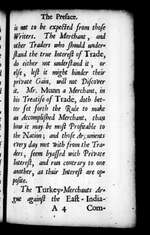 The Preface.
is not to be expected from those
Writers. The Merchant, and
other Traders who should under-
stand the true Interest of Trade,
do either not understand it, or
else, lest it might hinder their
private Gain, will not Discover
it. Mr. Munn a Merchant, in
his Treatise of Trade, doth bet-
ter set forth the Rule to make
an Accomplished Merchant, than
how it may be most Profitable to
the Nation; and those Ar
every day met with from the Tra-
ders, seem byassed with Private
Interest, and run contrary to one
another, as their Interest are op-
posite.
The Turkey-Merchants Ar-
gue against the East-India-
A 4 Com-